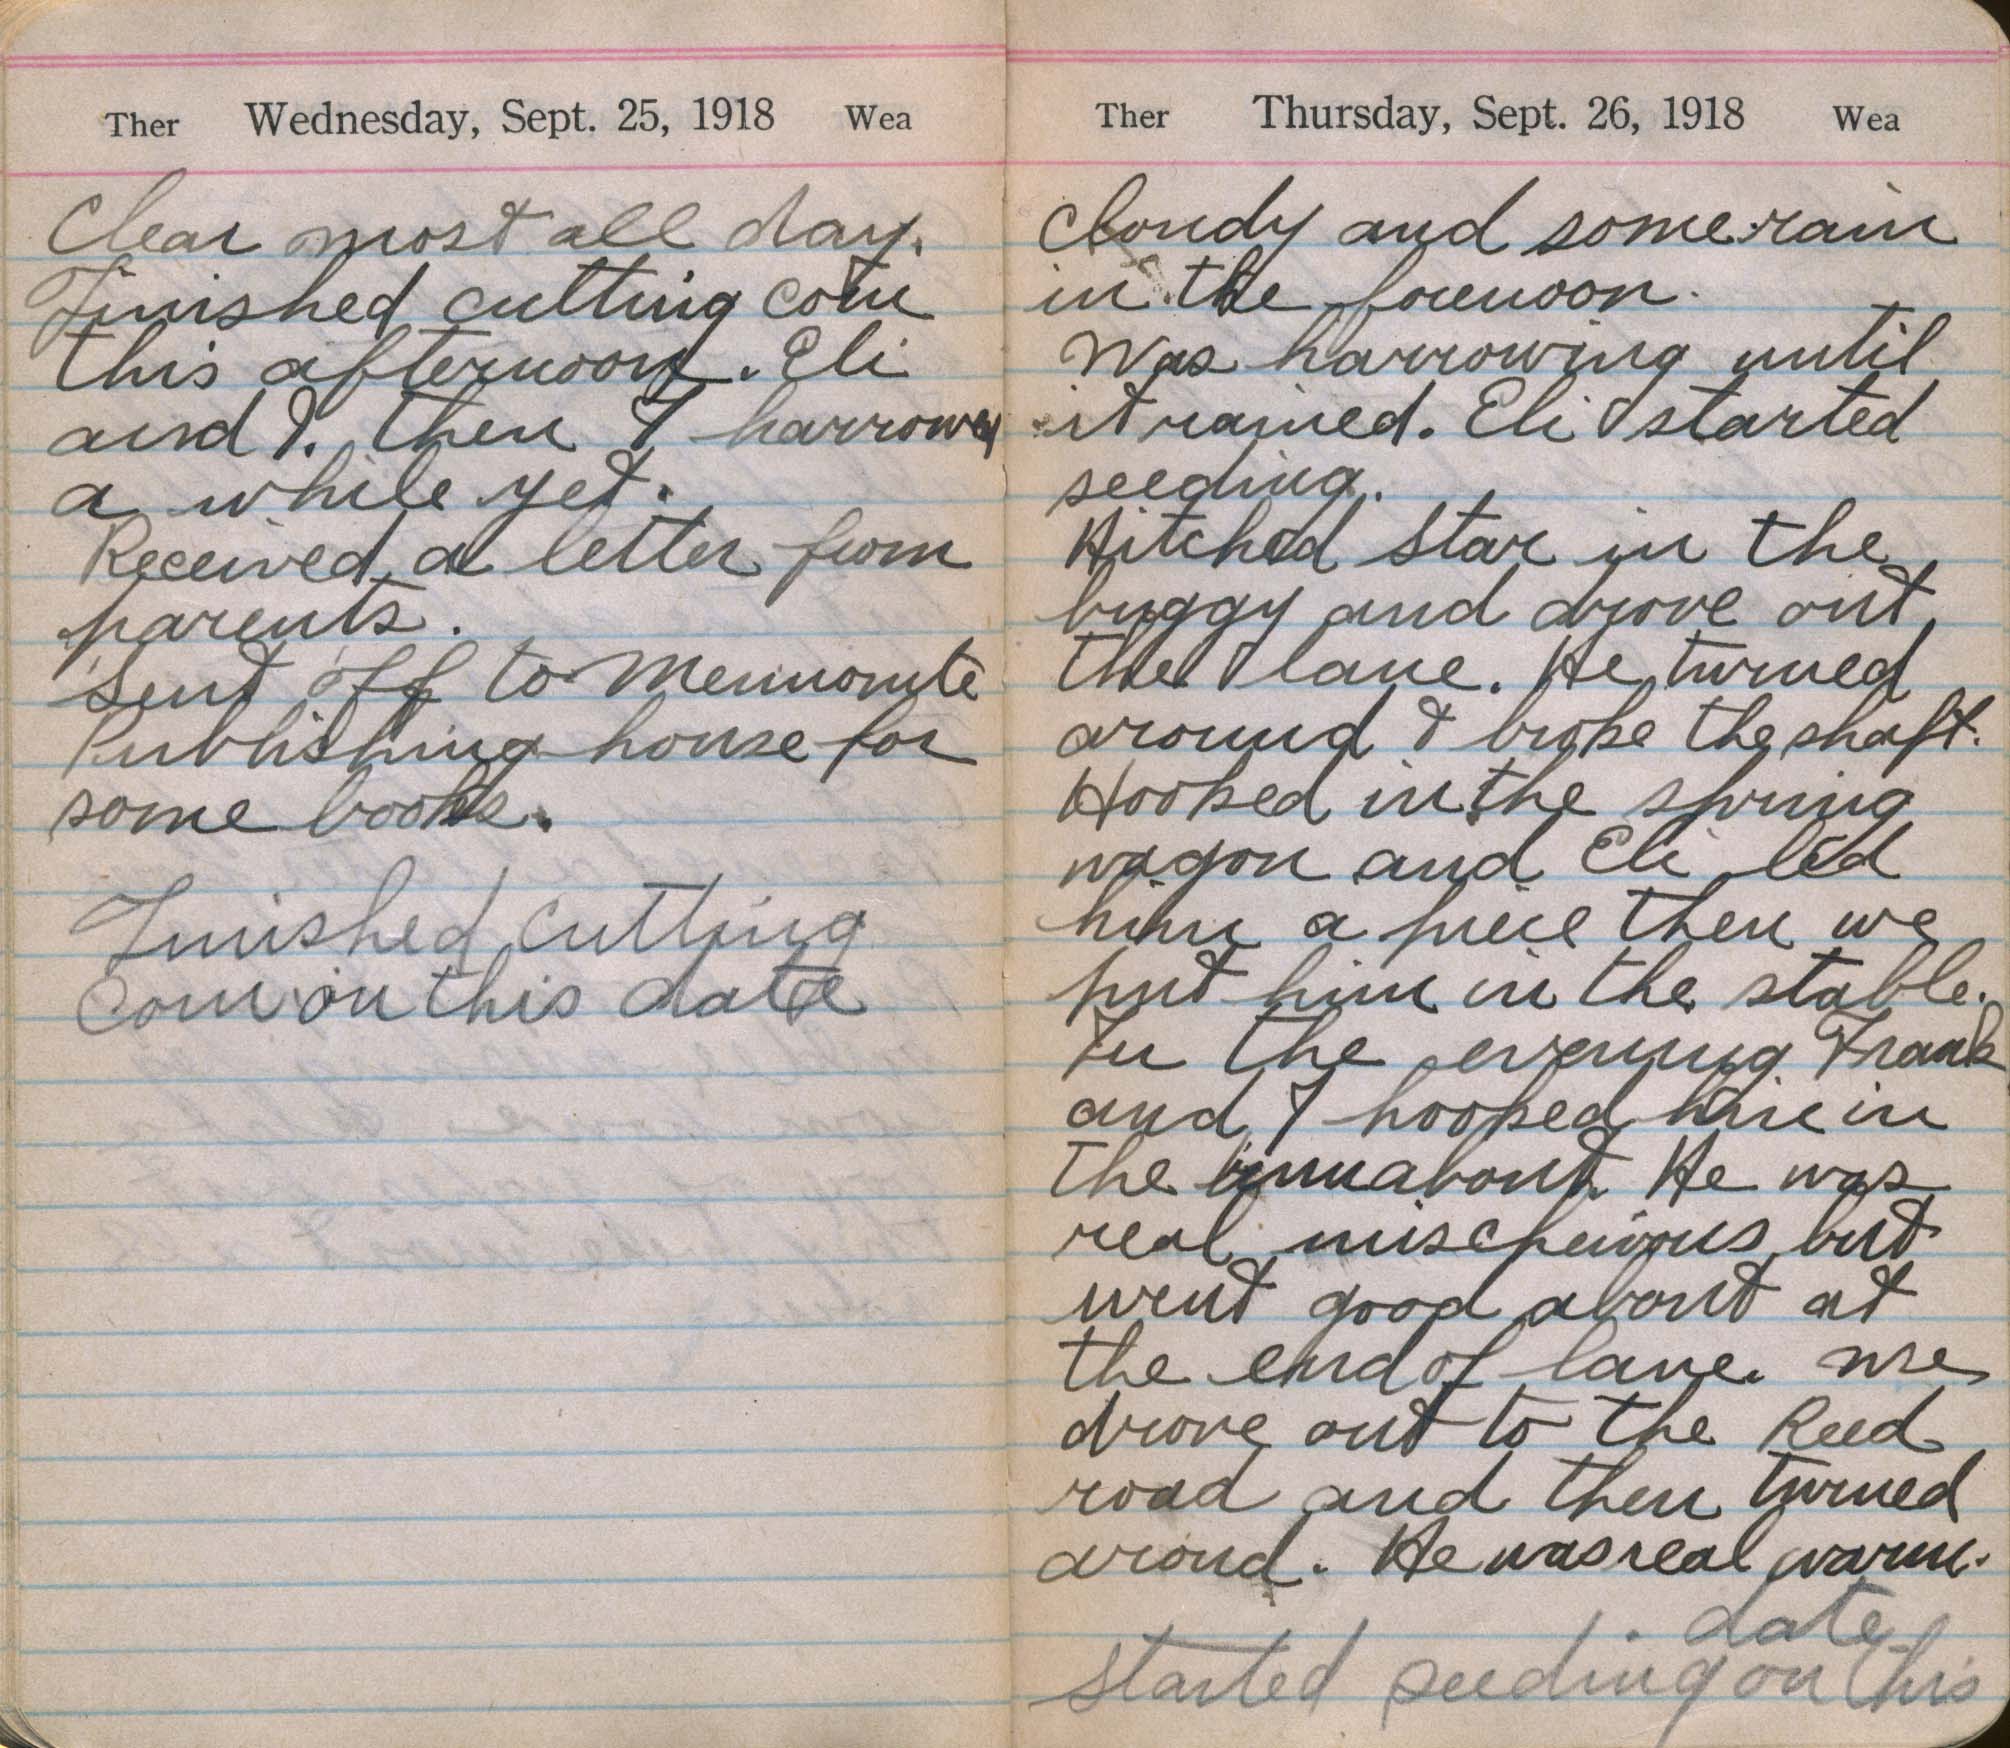 Ther Wednesday, Sept. 25, 1918 Wea
Clear most all day.
Finished cutting corn
this afternoon. Eli
and I. then I harrowed
a while yet.
Received a letter from
parents.
Sent off to Mennonite
Publishing house for
some books.
Finished cutting
corn on this date
Ther Thursday, Sept. 26, 1918 Wea
Cloudy and some rain
in the forenoon.
Was harrowing until
it rained. Eli started
seeding.
Hitched Star in the
buggy and drove out
the lane. He turned
around & broke the shaft.
Hooked in the spring
wagon and Eli led
him a piece then we
put him in the stable.
In the evening Frank
and I hooked him in
the runabout. He was
real mischeivous but
went good about at
the end of lane. We
drove out to the Reed
road and then turned
around. He was real warm.
date
started seeding on this